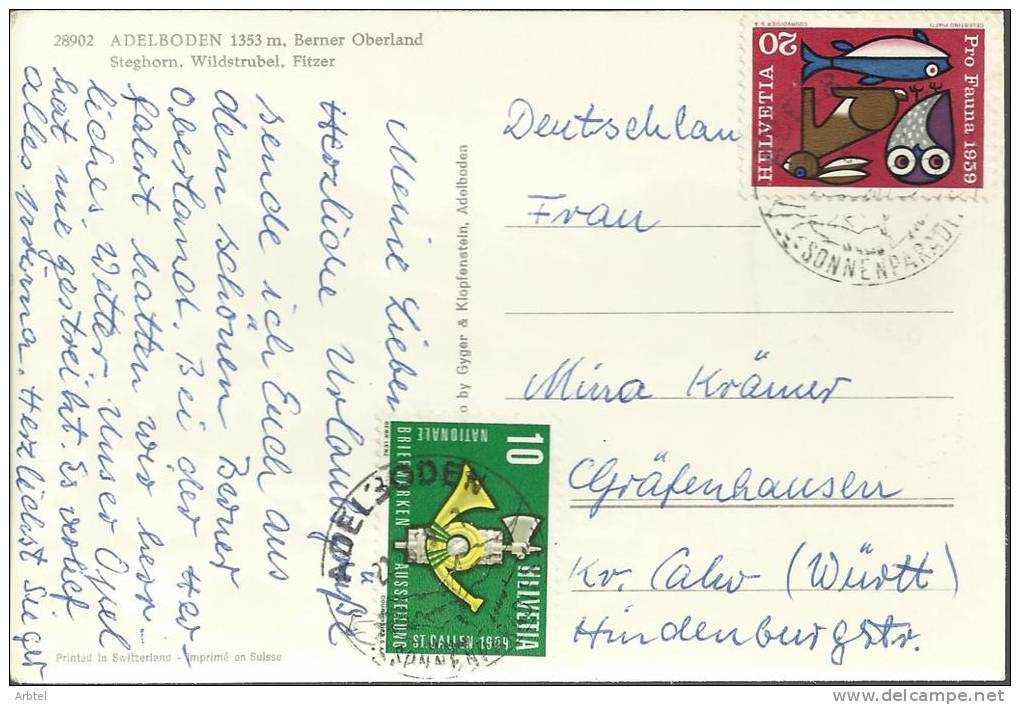 28902 ADELBODEN 1353 m, Berner Oberland
Steghorn, Wildstrubel, Fitzer
Meine Lieben
Herzliche Urlaubsgrüße
sende ich Euch aus
dem schönen Berner
Oberland. Bei der Her-
fahrt hatten wir herr-
liches Wetter. Unser Opel
hat nie gestreikt. Es verlief
alles prima. Herzlichst
Printed in Switzerland - Imprimé en Suisse
by Gyger & Klopfenstein, Adelboden
Deutschlan
Frau
Mina Krämer
Gräfenhausen
Kr. Calw (Württ)
Hindenburgstr.
20
HELVETIA
Pro Fauna 1959
COURVOISIER S.A.
CELESTINO PIATTI
SONNENPARADI
10
NATIONALE
BRIEFMARKEN AUSSTELLUNG
ST. GALLEN 1959
HELVETIA
ADELBODEN
SONNENP
Arbtel
www.delcampe.net